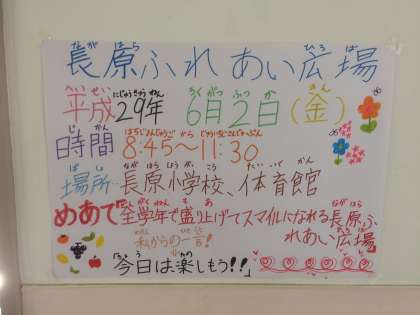 長原ふれあい広場
平成29年 6月2日(金)
時間 8:45～11:30
場所 長原小学校、体育館
めあて 全学年で盛り上げてスマイルになれる長原ふれあい広場
私からの一言!
今日は楽しもう!!